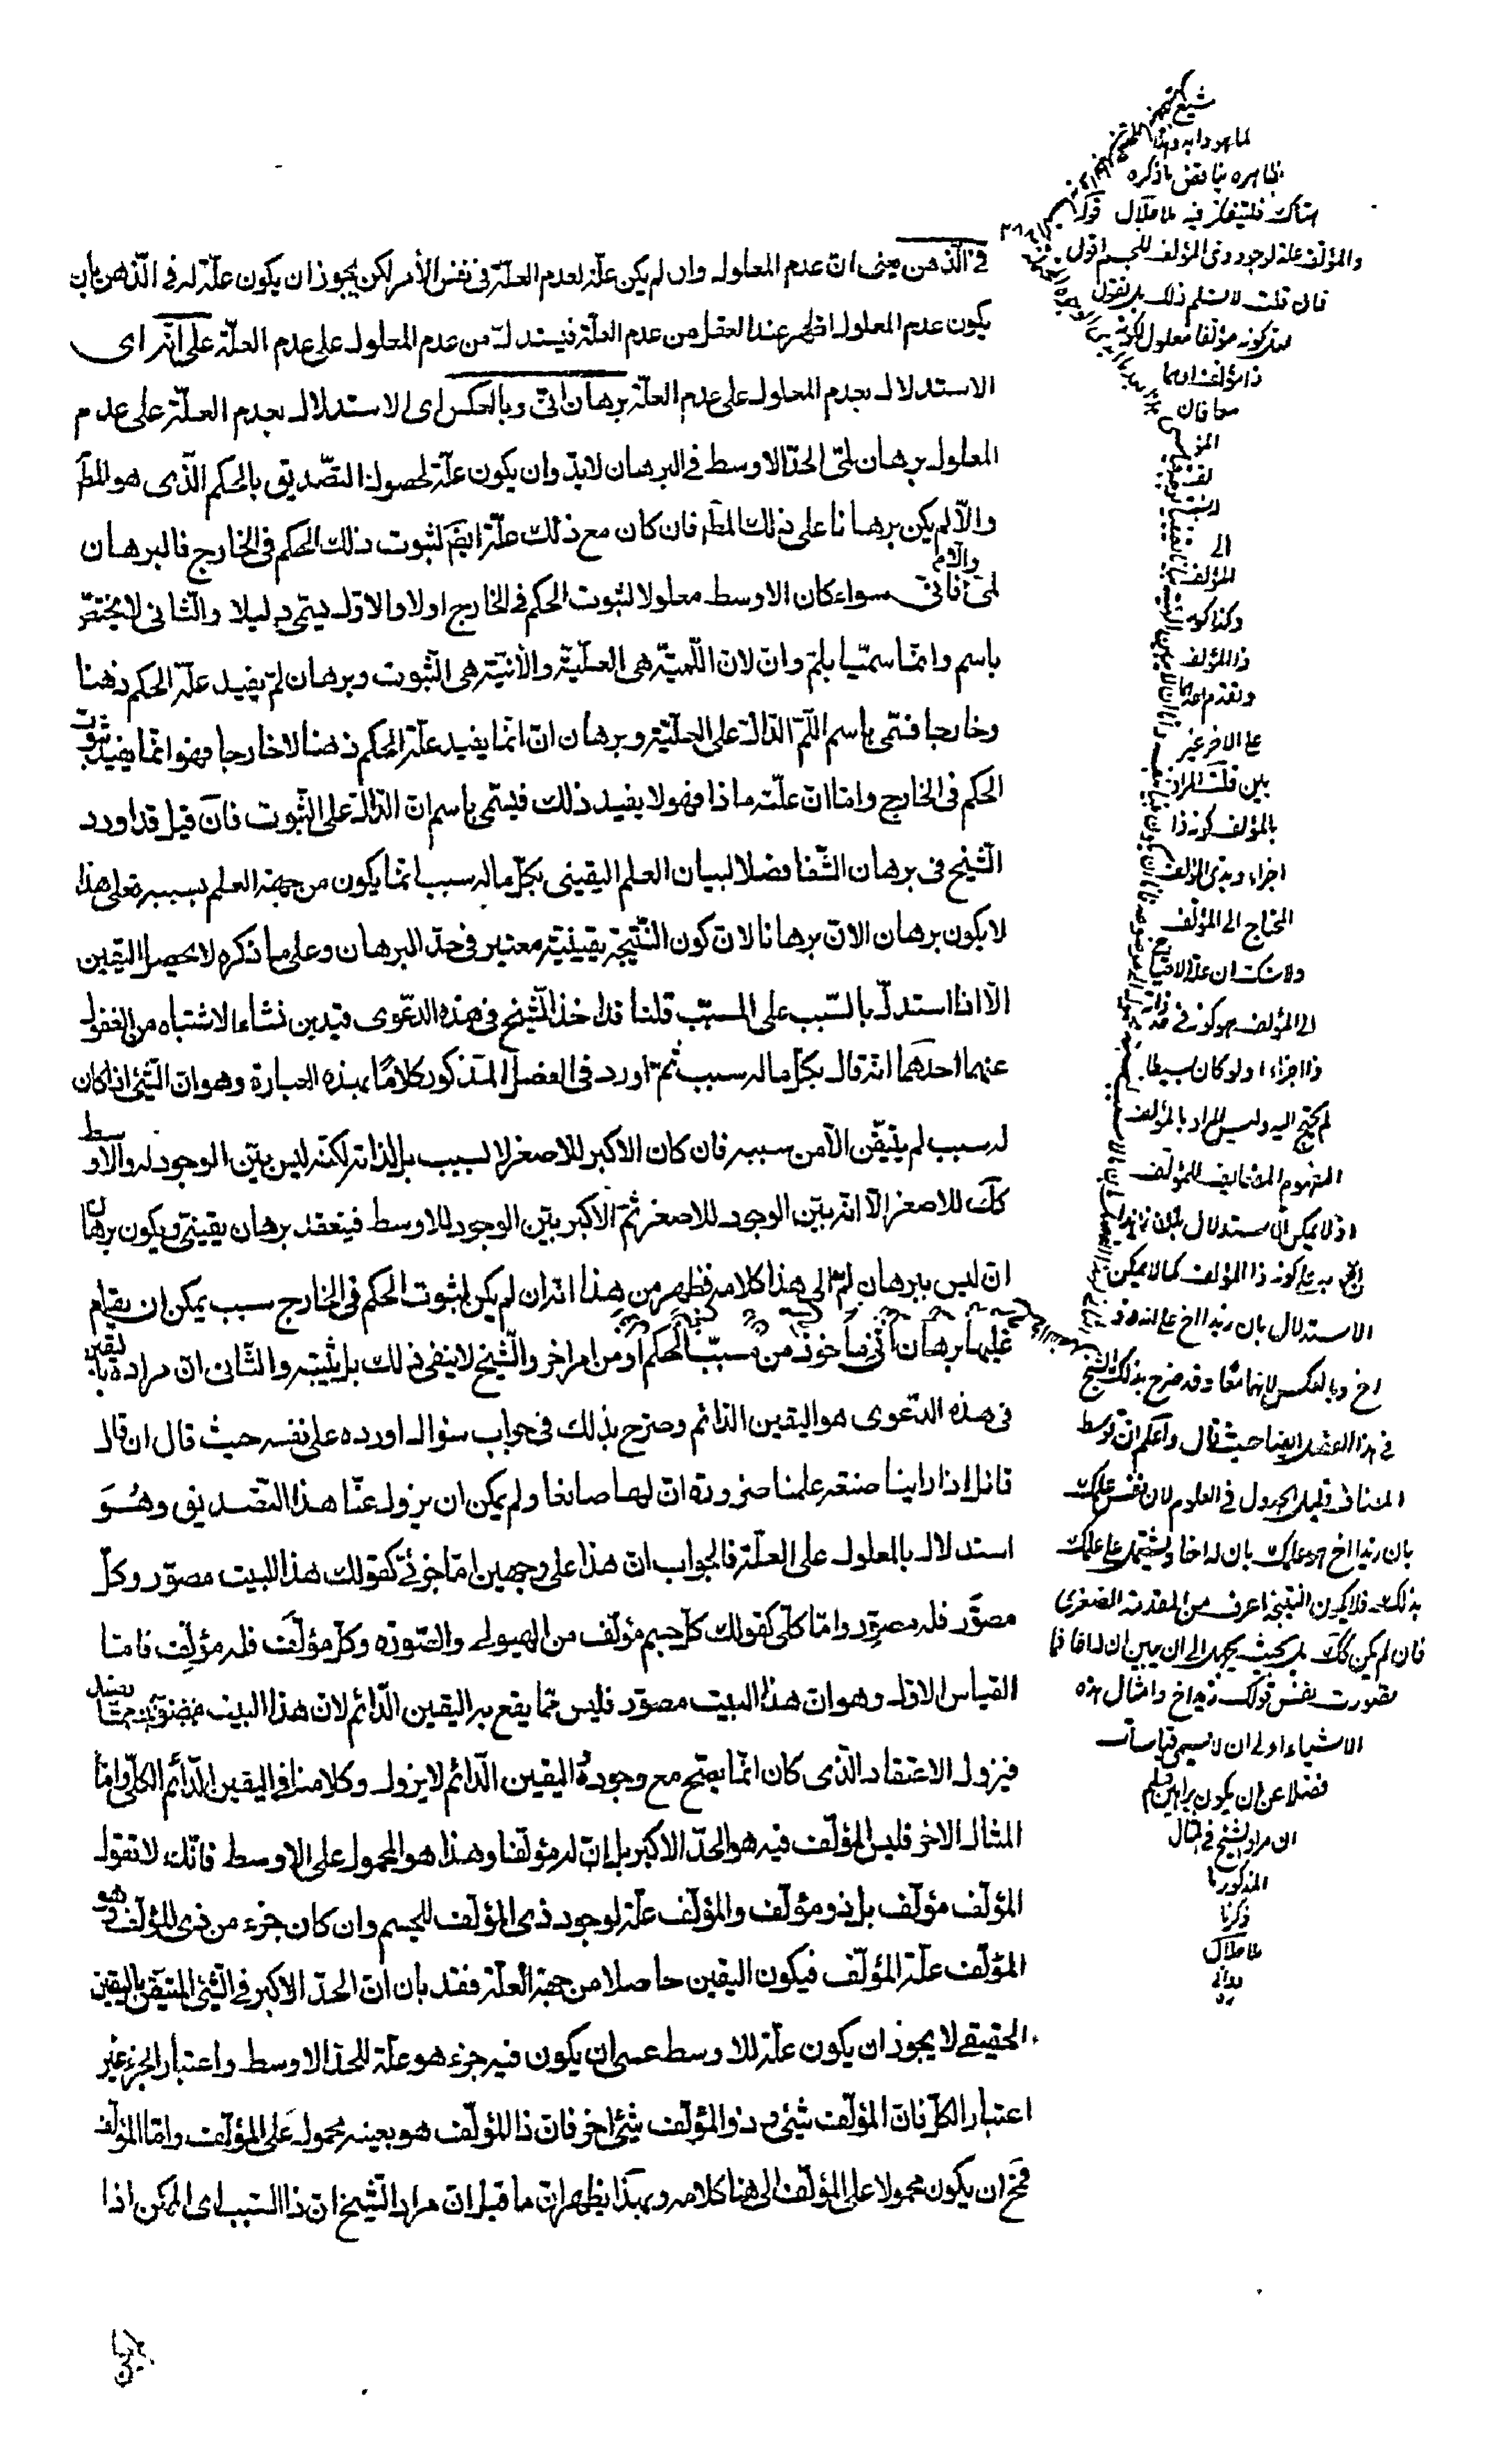 في الذهن يعنى ان عدم المعلول وان لم يكن علّة لعدم العلّة فى نفس الأمر لكن يجوز ان يكون علّة له فى الذّهن بان
يكون عدم المعلول اظهر عند العقل من عدم العلّة فيستدلّ من عدم المعلول على عدم العلّة على انّه اى
الاستدلال بعدم المعلول على عدم العلّة برهان انّى وبالعكس اى الاستدلال بعدم العلّة على عدم
المعلول برهان لمّى الحدّ الاوسط فى البرهان لابدّ وان يكون علّة لحصول التصّديق بالحكم الّذى هو المط
والّا لم يكن برهانا على ذلك المط فان كان مع ذلك علّة ايضَ لثبوت ذلك الحكم فى الخارج فالبرهان
لمّى والّا فانّى سواء كان الاوسط معلولا لثبوت الحكم فى الخارج اولا والاوّل يسمّى دليلا والثّانى لا يختصّ
باسم وانّما سمّيا بلمّ وانّ لان اللّميّة هى العلّيّة والأنيّة هى الثّبوت وبرهان لمّ يفيد علّة الحكم ذهنا
وخارجا فسمّى باسم اللّمّ الدّالّة على العلّيّة وبرهان انّ انّما يفيد علّة الحكم ذهنا لا خارجا فهو انّما يفيد ثبوت
الحكم فى الخارج وامّا انّ علّته ماذا فهو لا يفيد ذلك فيسمّى باسم انّ الدّالّة على الثّبوت فان قيل قد اورد
الشّيخ فى برهان الشّفا فصلا لبيان العلم اليقينى بكلّ ماله سبب انّما يكون من جهة العلم بسببه فعلى هذا
لا يكون برهان الانّ برهانا لانّ كون النّتيجة يقينيّة معتبر فى حدّ البرهان وعلى ما ذكره لا يحصل اليقين
الّا اذا استدلّ بالسّبب على المسبّب قلنا قد اخذ الشّيخ فى هذه الدّعوى قيدين نشاء الاشتباه من الغفول
عنهما احدهما انّه قال بكلّ ماله سبب ثمّ اورد فى الفصل المذكور كلامًا بهذه العبارة وهو انّ الشّئ اذا كان
له سبب لم يتيقّن الّا من سببه فان كان الاكبر للاصغر لا لسبب بل لذاته لكنّه ليس بيّن الوجود له والاوسط
كك للاصغر الّا انّه بيّن الوجود للاصغر ثمّ الاكبر بيّن الوجود للاوسط فينعقد برهان يقينىّ ويكون برهان
انّ ليس ببرهان لمّ الى هذا كلامه فظهر من هذا انّه ان لم يكن لثبوت الحكم فى الخارج سبب يمكن ان يقام
عليها برهان انّى ماخوذ من مسبّب الحكم او من امر اخر والشّيخ لا ينفى ذلك بل يثبته والثّانى انّ مراده باليقين
فى هذه الدّعوى هو اليقين الدّائم وصرّح بذلك فى جواب سؤال اورده على نفسه حيث قال ان قال
قائل اذا راينا صنعة علمنا ضرورة انّ لها صانعا ولم يمكن ان يزول عنّا هذا التّصديق وهُوَ
استدلال بالمعلول على العلّة فالجواب انّ هذا على وجهين امّا جزئىّ كقولك هذا البيت مصوّر وكلّ
مصوَّر فله مصوّر وامّا كلّى كقولك كلّ جسم مؤلّف من الهيولى والصّورة وكلّ مؤلّف فله مؤلّف فامّا
القياس الاوّل وهو انّ هذا البيت مصوّر فليس ممّا يقع به اليقين الدّائم لانّ هذا البيت ممّا يفسد
فيزول الاعتقاد الّذى كان انّما يصحّ مع وجوده واليقين الدّائم لا يزول وكلامنا فى اليقين الدّائم الكلّى وامّا
المثال الاخر فليس المؤلّف فيه هو الحدّ الاكبر بل انّ له مؤلّفا وهذا هو المحمول على الاوسط فانّك لا تقول
المؤلّف مؤلّف بل ذو مؤلّف والمؤلّف علّة لوجود ذى المؤلّف للجسم وان كان جزء من ذى المؤلّف وهو
المؤلّف علّة المؤلّف فيكون اليقين حاصلا من جهة العلّة فقد بان انّ الحدّ الاكبر فى الشّئ المتيقّن باليقين
الحقيقى لا يجوز ان يكون علّة للاوسط عسى ان يكون فيه جزء هو علّة للحدّ الاوسط واعتبار الجزء غير
اعتبار الكلّ فانّ المؤلّف شئ وذو المؤلّف شئ اخر فانّ ذا المؤلّف هو بعينه محمول على المؤلّف وامّا المؤلّف
فمح ان يكون محمولا على المؤلّف الى هنا كلامه وبهذا يظهر انّ ما قيل انّ مراد الشّيخ انّ ذا السّبب اى الممكن اذا
ظاهره يناقض ما ذكره
هناك فليتفكر فيه ملا جلال قوله
والمؤلف علة لوجود ذى المؤلف للجسم اقول
فان قلت لا نسلم ذلك بل نقول
كونه مؤلفا معلول لكونه
ذا مؤلف
معا فان
المؤ
لف
الى
المؤلف
وكذا كونه
ذا المؤلف
وتقدم احدهما
على الاخر غير
بين قلت المراد
بالمؤلف كونه ذا
اجزاء وبذى المؤلف
المحتاج الى المؤلف
ولا شك ان علة الاحتياج
الى المؤلف هو كونه فى حد ذاته
ذا اجزاء ولو كان بسيطا
لم يحتج اليه وليس المراد بالمؤلف
المفهوم المضايف للمؤلف
اذ لا يمكن الاستدلال
به على كونه ذا المؤلف كما لا يمكن
الاستدلال بان زيدا اخ على انه ذو
اخ وبالعكس لانهما معًا وقد صرح بذلك الشيخ
فى هذا الفصل ايضا حيث قال واعلم ان توسط
المضاف قليل الجدوى فى العلوم لان نفس علمك
بان زيدا اخ هو علمك بان له اخا او يشتمل على علمك
بذلك فلا يكون النتيجة اعرف من المقدمة الصغرى
فان لم يكن كك بل بحيث يجهل الى ان يبين ان له اخا فما
تصورت نفس قولك زيد اخ وامثال هذه
الاشياء اولى ان لا تسمى قياسات
فضلا عن ان يكون براهين
ان مراد الشيخ فى المثال
المذكور ما
ذكرنا
ملا جلال